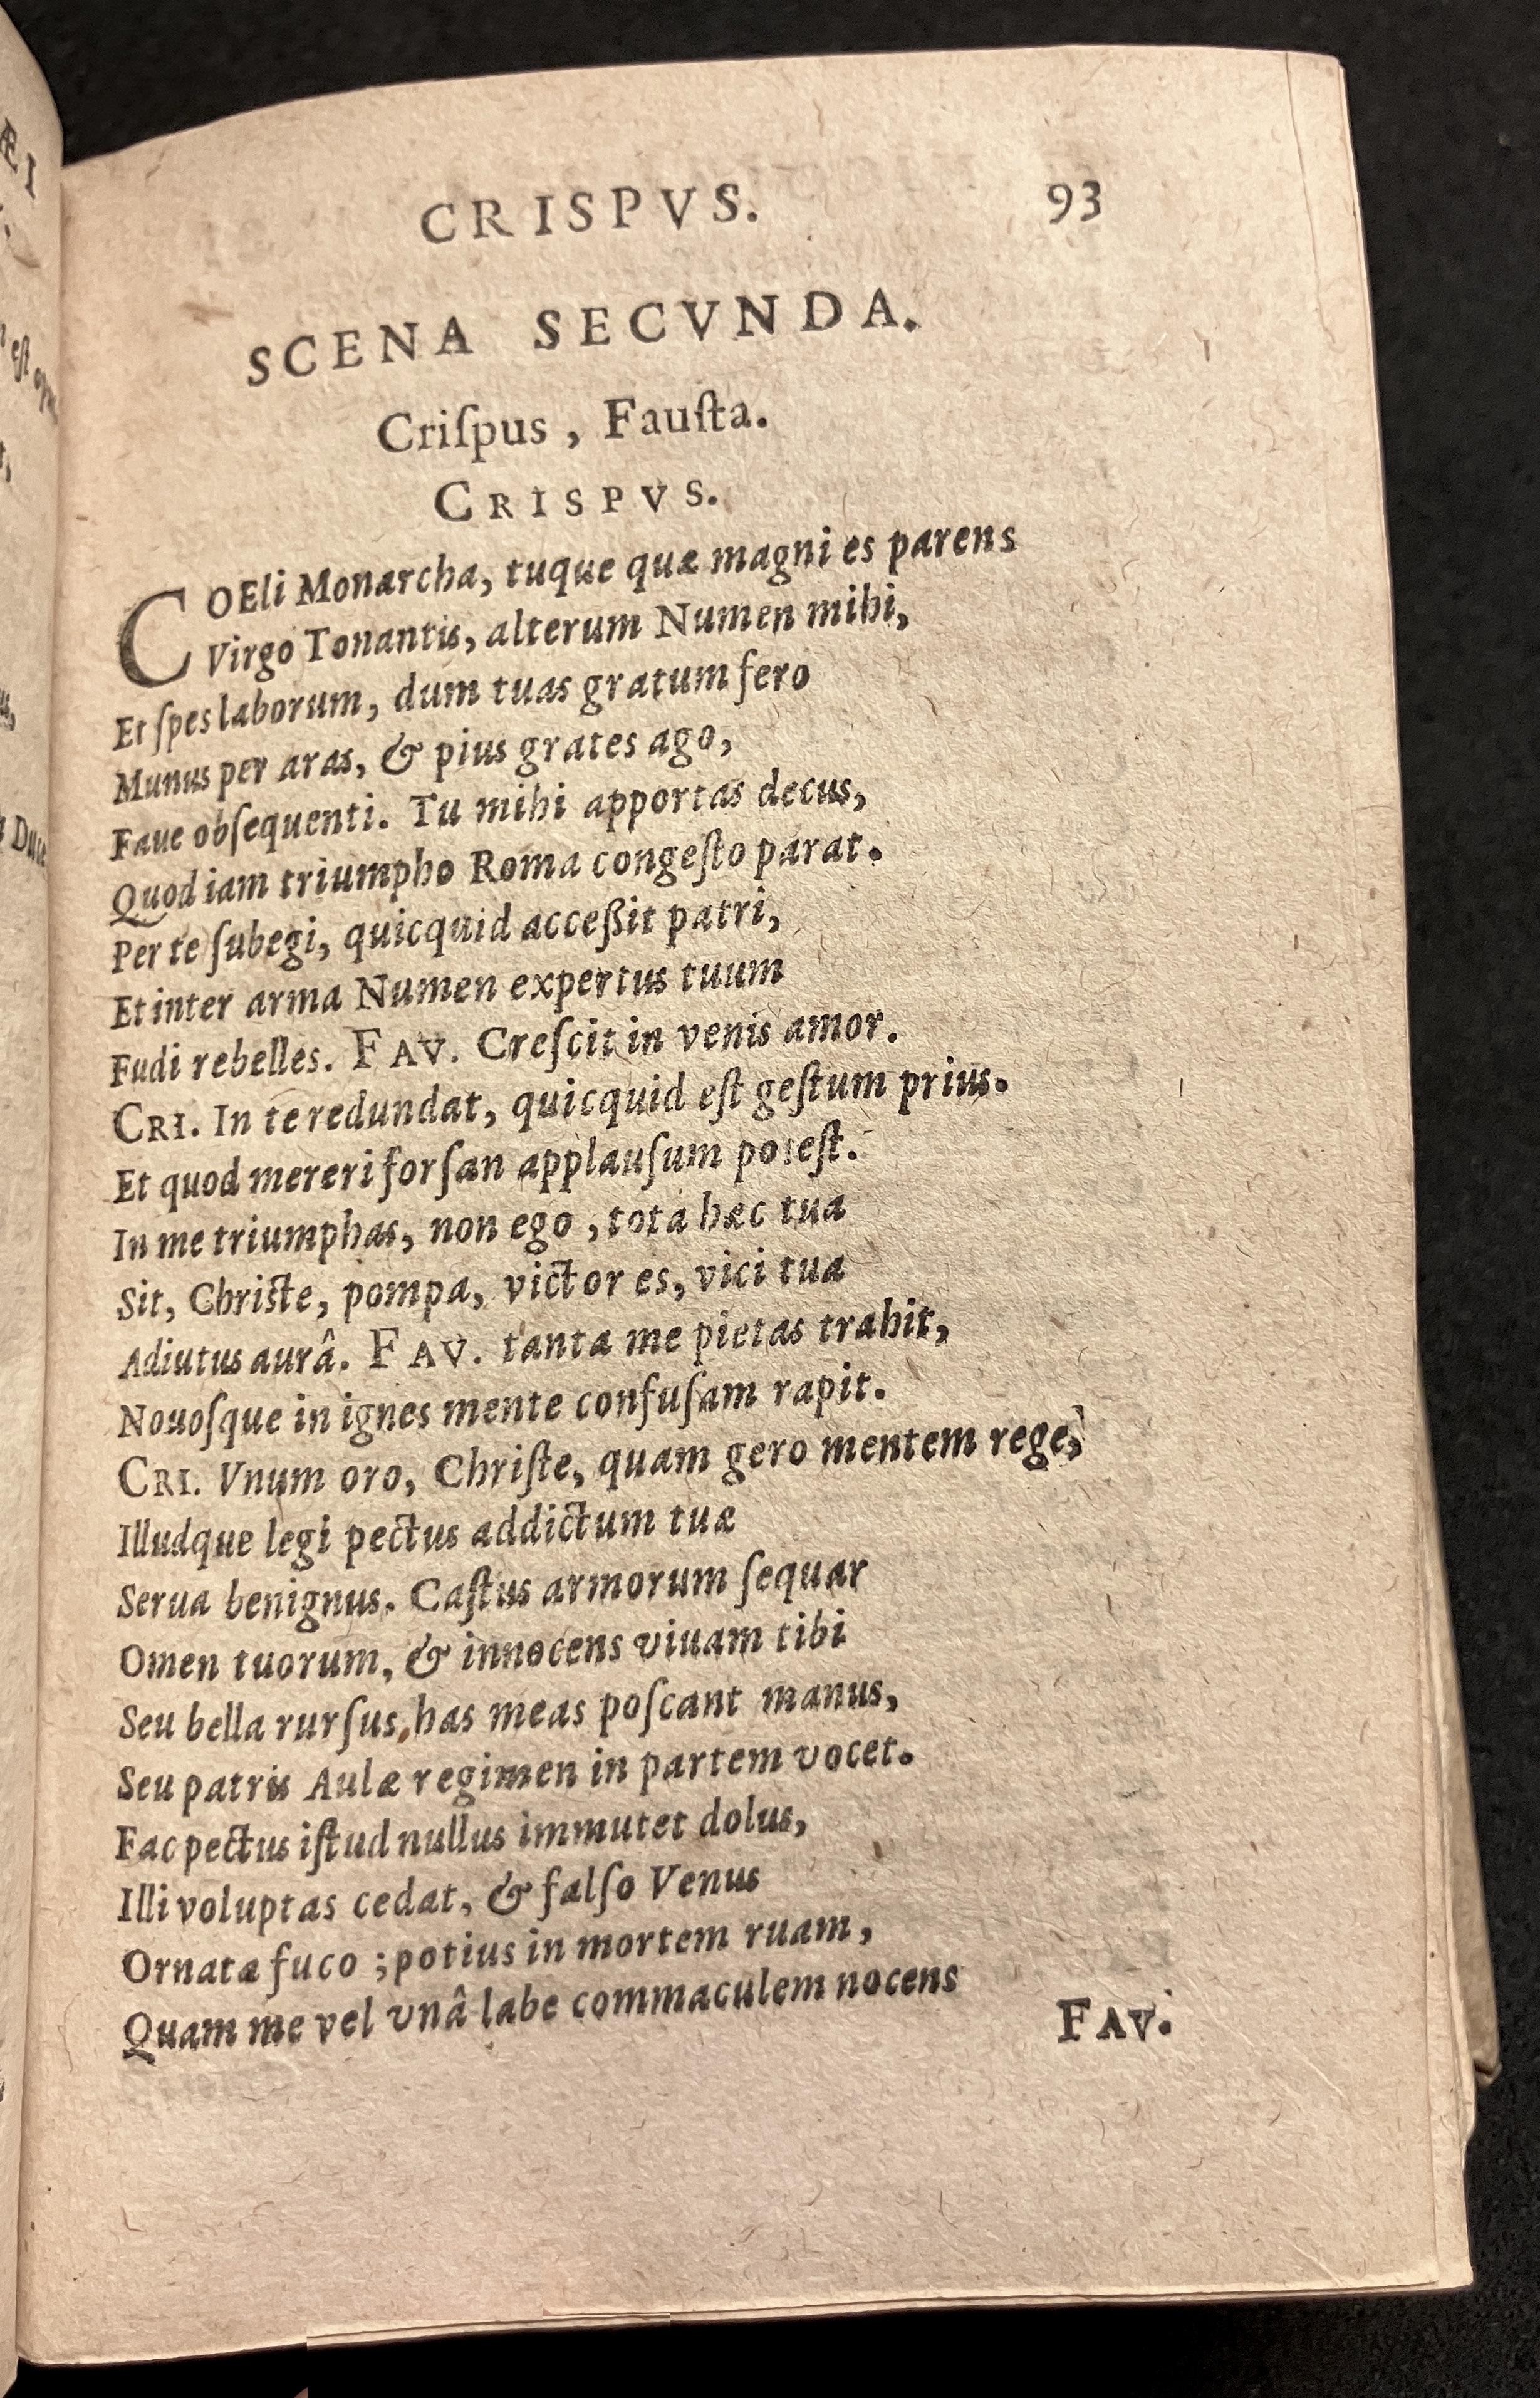 CRISPVS. 93
SCENA SECVNDA.
Criſpus, Fauſta.
CRISPVS.
COEli Monarcha, tuque quæ magni es parens
Virgo Tonantis, alterum Numen mihi,
Et ſpes laborum, dum tuas gratum fero
Munus per aras, & pius grates ago,
Faue obſequenti. Tu mihi apportas decus,
Quod iam triumpho Roma congeſto parat.
Per te ſubegi, quicquid acceßit patri,
Et inter arma Numen expertus tuum
Fudi rebelles. FAV. Creſcit in venis amor.
CRI. In te redundat, quicquid eſt geſtum prius.
Et quod mereri forſan applauſum poteſt.
In me triumphas, non ego, tota hæc tua
Sit, Chriſte, pompa, victor es, vici tua
Adiutus aurâ. FAV. tanta me pietas trahit,
Nouoſque in ignes mente confuſam rapit.
CRI. Vnum oro, Chriſte, quam gero mentem rege,
Illudque legi pectus addictum tuæ
Serua benignus. Caſtus armorum ſequar
Omen tuorum, & innocens viuam tibi
Seu bella rurſus, has meas poſcant manus,
Seu patris Aulæ regimen in partem vocet.
Fac pectus iſtud nullus immutet dolus,
Illi voluptas cedat, & falſo Venus
Ornata fuco; potius in mortem ruam,
Quam me vel vnâ labe commaculem nocens
FAV.